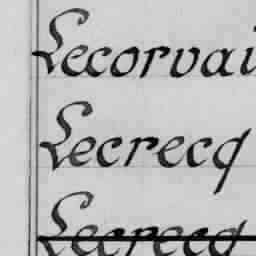 Lecorvai
Lecrecq
Lecrecq